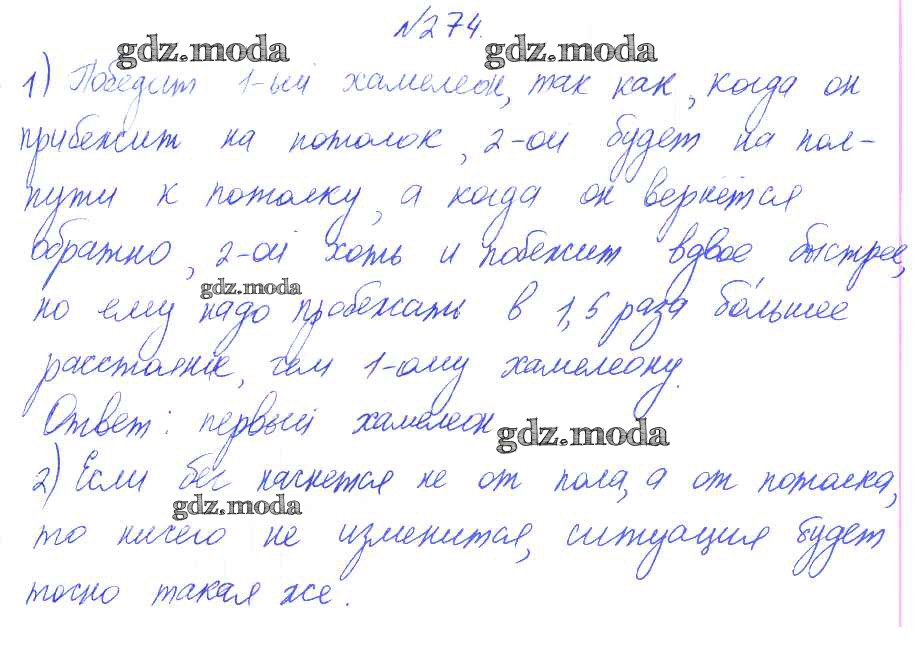 №274.
gdz.moda gdz.moda
1) Победит 1-ый хамелеон, так как, когда он
прибежит на потолок, 2-ой будет на пол-
пути к потолку, а когда он вернётся
обратно, 2-ой хоть и побежит вдвое быстрее,
gdz.moda
но ему надо пробежать в 1,5 раза бо́льшее
расстояние, чем 1-ому хамелеону.
Ответ: первый хамелеон
gdz.moda
2) Если бег начнется не от пола, а от потолка,
gdz.moda
то ничего не изменится, ситуация будет
точно такая же.